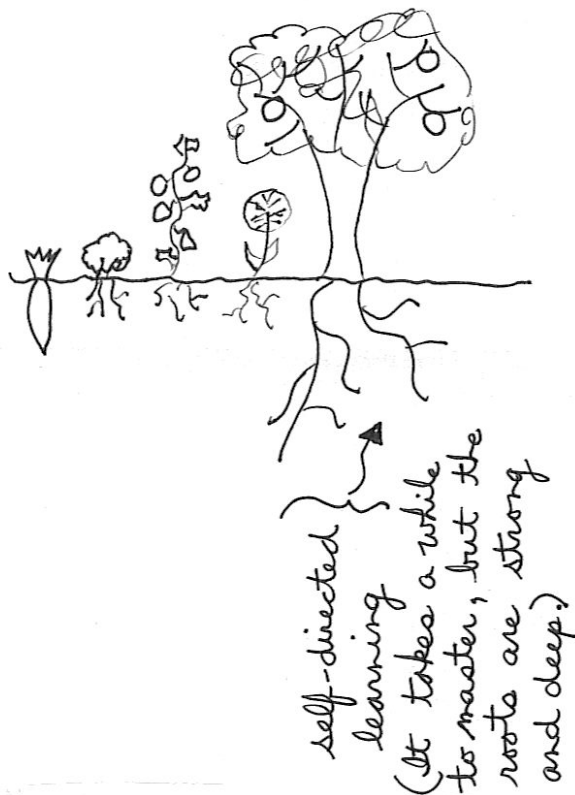 self-directed
learning
(It takes a while
to master, but the
roots are strong
and deep.)